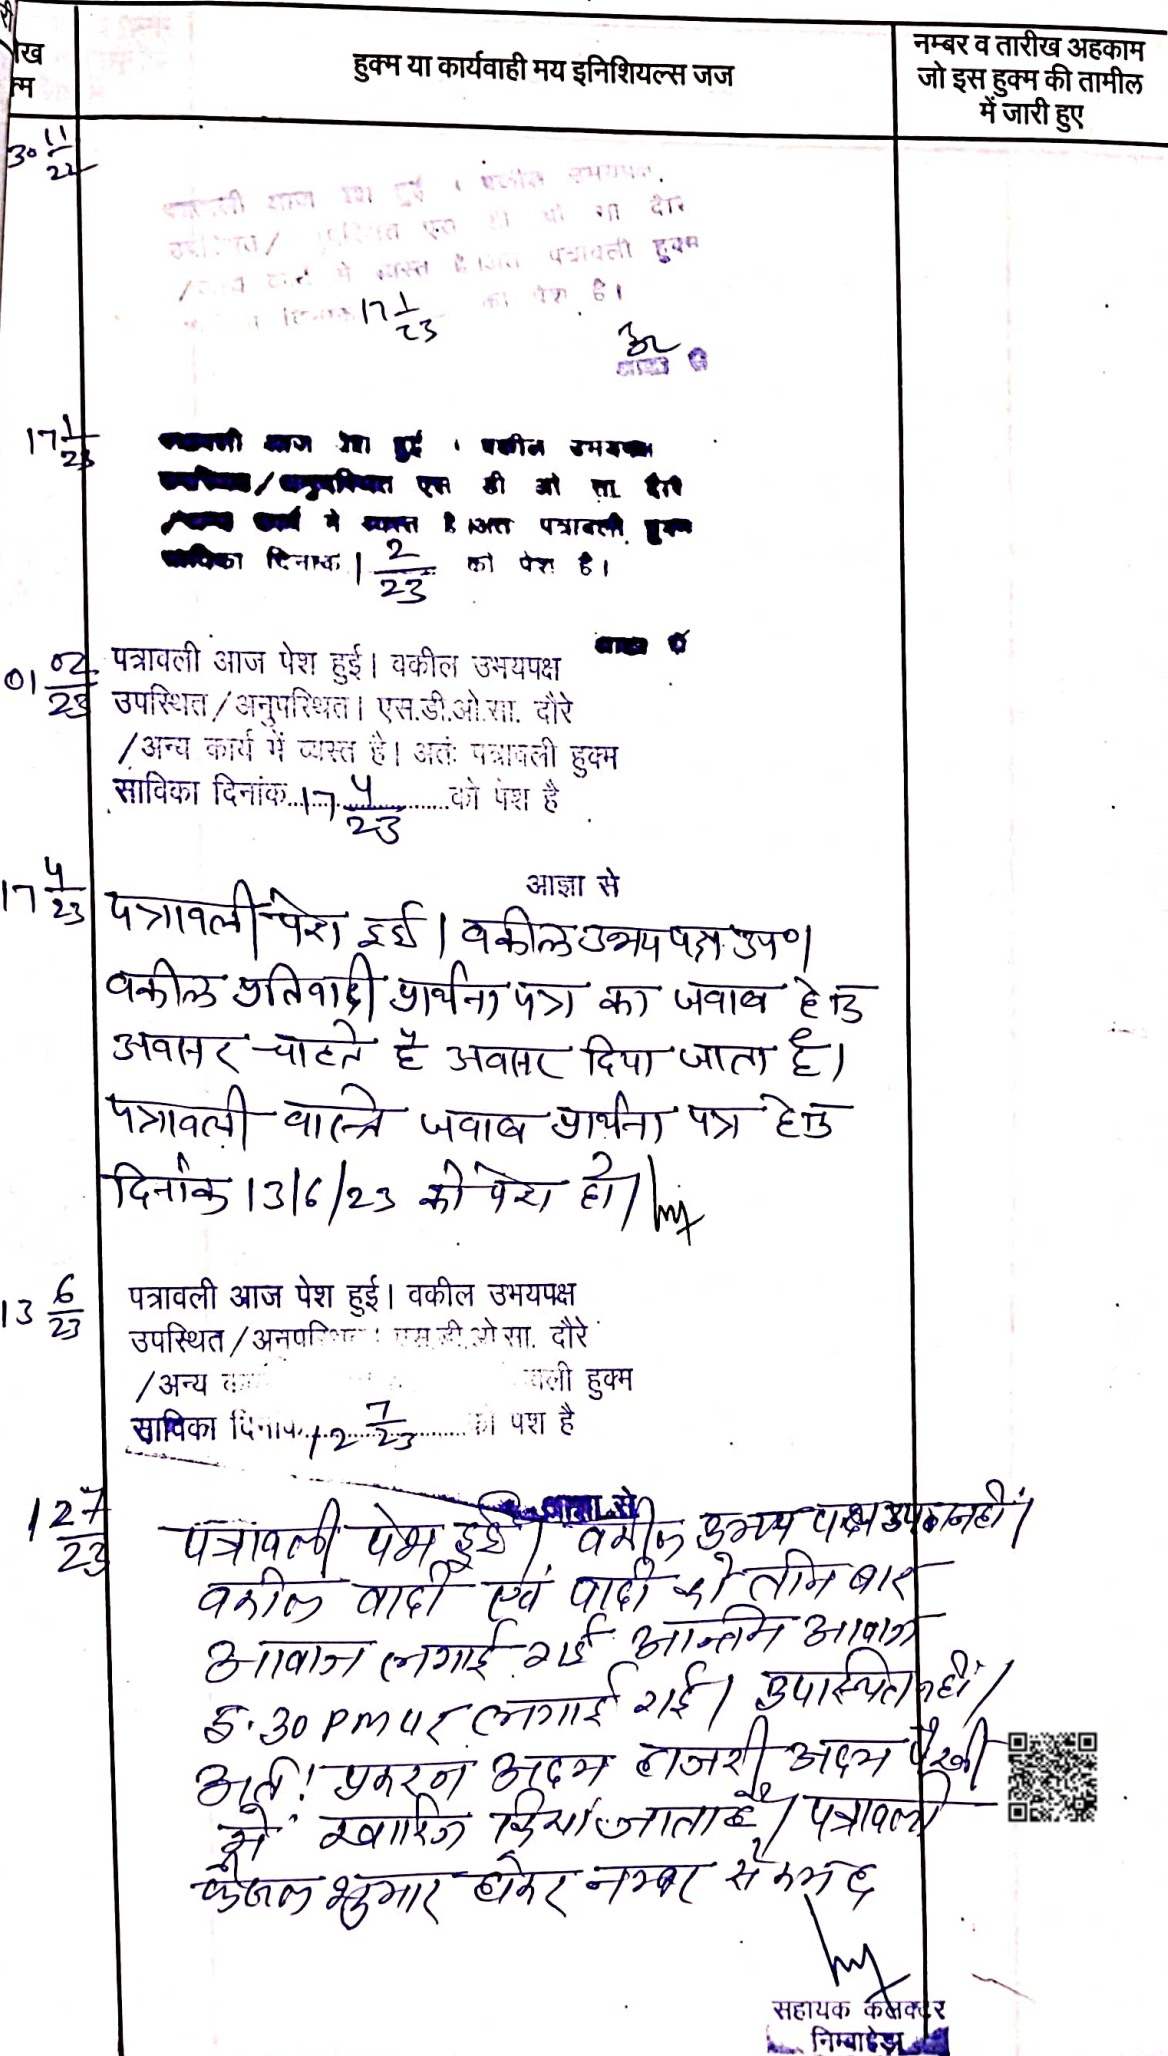 री
ाख
हुक्म या कार्यवाही मय इनिशियल्स जज
नम्बर व तारीख अहकाम
जो इस हुक्म की तामील
में जारी हुए
क्म
30 11/22
पत्रावली आज पेश हुई । वकील उभयपक्ष
उपस्थित/ एस डी ओ सा दौरे
/अन्य कार्य में व्यस्त है ।अत पत्रावली हुक्म
दिनांक 17 1/23 को पेश है।
17 1/23
पत्रावली आज पेश हुई । वकील उभयपक्ष
उपस्थित/अनुपस्थित एस डी ओ सा. दौरे
/अन्य कार्य में व्यस्त है ।अत पत्रावली हुक्म
साविका दिनांक 1 2/23 को पेश है।
01 02/23
पत्रावली आज पेश हुई। वकील उभयपक्ष
उपस्थित/अनुपस्थित। एस.डी.ओ.सा. दौरे
/अन्य कार्य में व्यस्त है। अतः पत्रावली हुक्म
साविका दिनांक...17 4/23......को पेश है
आज्ञा से
17 4/23
पत्रावली पेश हुई। वकील उभयपक्ष उप०।
वकील प्रतिवादी प्रार्थना पत्र का जवाब हेतु
अवसर चाहते है अवसर दिया जाता है।
पत्रावली वास्ते जवाब प्रार्थना पत्र हेतु
दिनांक 13/6/23 को पेश हो।
13 6/23
पत्रावली आज पेश हुई। वकील उभयपक्ष
उपस्थित/अनुपस्थित। एस.डी.ओ.सा. दौरे
/अन्य वली हुक्म
साविका दिनांक...12 7/23......को पेश है
आज्ञा से
12 7/23
पत्रावली पेश हुई। वकील उभय पक्ष उप० नहीं।
वकील वादी एवं वादी को तीन बार
आवाज लगाई गई अन्तिम आवाज
5.30 PM पर लगाई गई। उपस्थित नहीं।
अतः प्रकरन अदम हाजरी अदम पैरवी
में खारिज किया जाता है। पत्रावली
फैसल शुमार होकर नम्बर से कम हो
सहायक कलक्टर
निम्बाहेड़ा